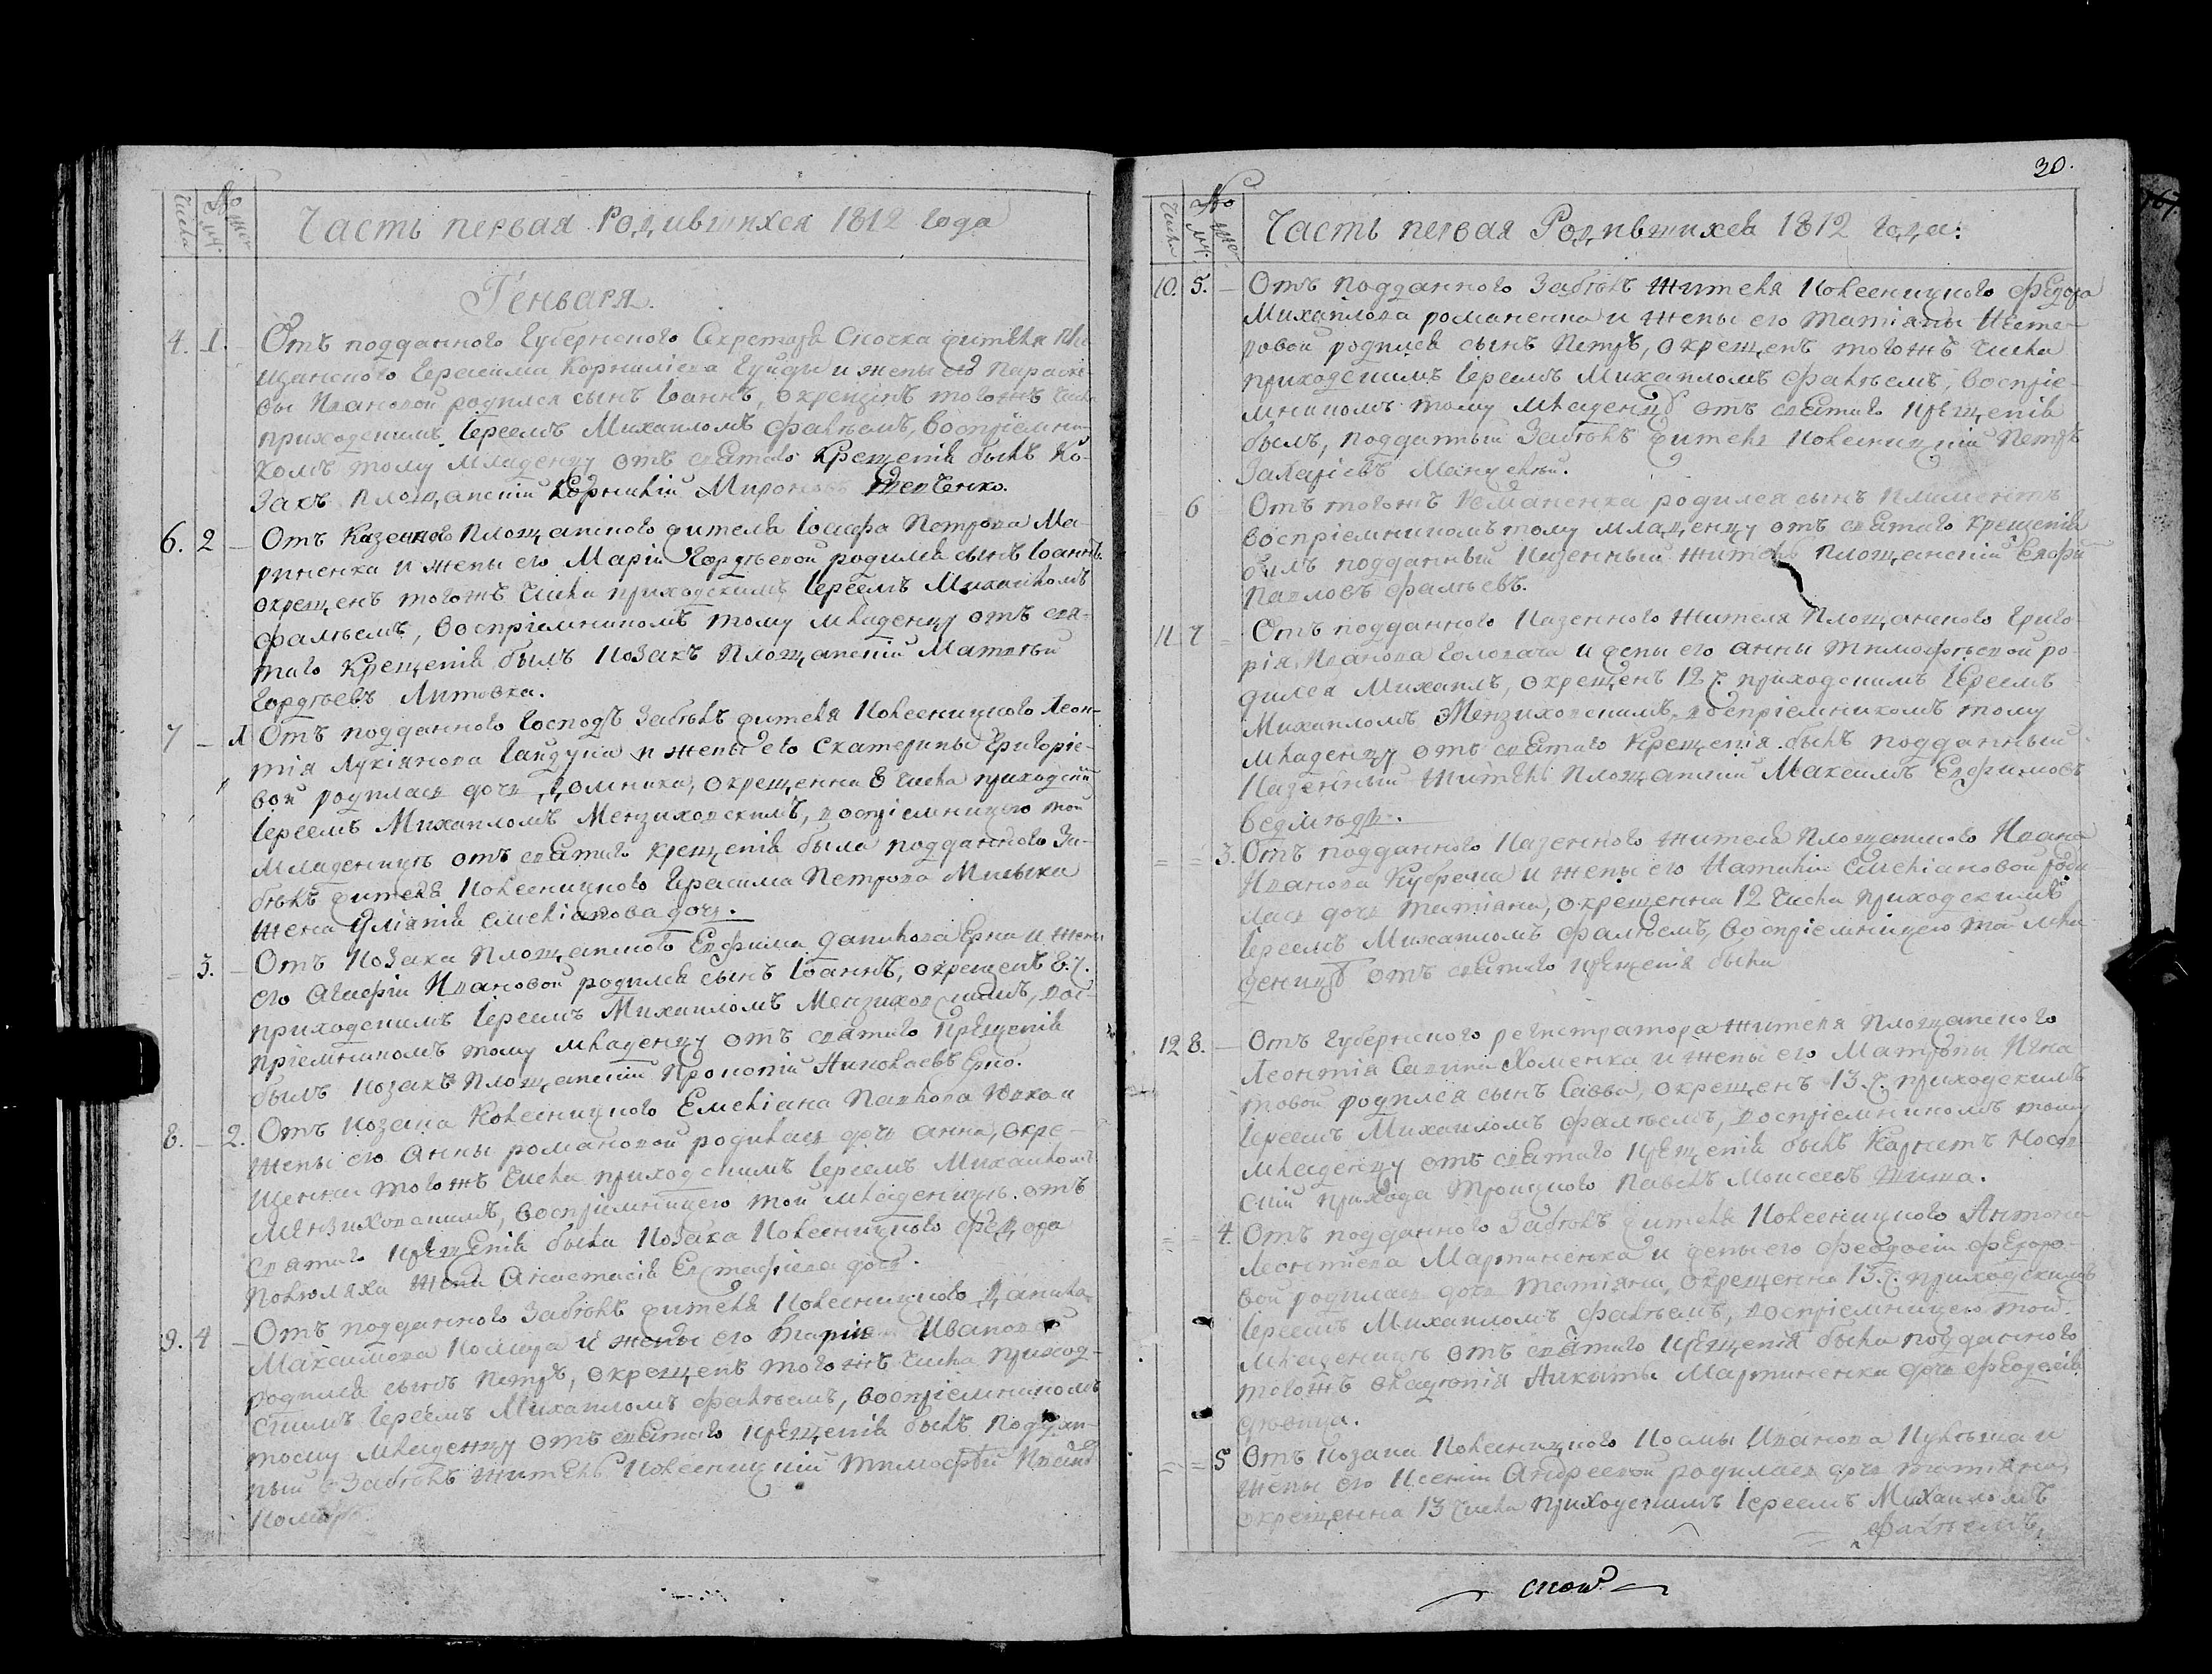 Числа
№ муж.
жен.
Часть первая Родившихся 1812 года
Генваря
4. 1. Отъ подданного Губернского Секретаря Сночка жителя Пло
щанского Герасима Корниліева Гуйды и жены его Параске
вы Ивановой родился сынъ Іоаннъ, окрещенъ тогожъ числа
приходскимъ Іереемъ Михаиломъ Фалѣемъ, воспріемни
комъ тому младенцу отъ святаго Крещенія былъ Ко-
закъ Площанскій Корнилій Мироновъ Шевченко.
6. 2 – Отъ Казенного Площанского жителя Іосифа Петрова Ма-
риненка и жены его Маріи Гордѣевой родился сынъ Іоаннъ
окрещенъ тогожъ числа приходскимъ Іереемъ Михаиломъ
Фалѣемъ, воспріемникомъ тому младенцу отъ свя-
таго Крещенія былъ Козакъ Площанскій Матвѣй
Гордѣевъ Литовка.
7 – 1 Отъ подданного Господъ Забѣлъ жителя Колесницкого Леон-
тія Лукіянова Гайдука и жены его Екатерины Григоріе-
вой родилась дочь Домника, окрещенна 8 числа приходскимъ
Іереемъ Михаиломъ Мензиховскимъ, воспріемницею той
младеницѣ отъ святаго крещенія была подданного За-
бѣлъ жителя Колесницкого Герасима Петрова
жена Уліянія Емеліанова дочь.
– 3. – Отъ Козака Площанского Евфима Данилова Ерка и жены
его Агафіи Ивановой родился сынъ Іоаннъ, окрещенъ 8.ч.
приходскимъ Іереемъ Михаиломъ Мензиховскимъ, вос-
пріемникомъ тому младенцу отъ святаго Крещенія
былъ козакъ Площанскій Прокопій Николаевъ
8. – 2. Отъ козака Колесницкого Емеліана Павлова и
жены его Анны Романовой родилась дочь Анна, окре-
щенна тогожъ числа приходскимъ Іереемъ Михаиломъ
Мензиховскимъ, воспріемницею той младеницѣ отъ
святаго крещенія была Козака Колесницкого Федора
жена Анастасія Евстафіева дочь.
9. 4 – Отъ подданного Забѣлъ жителя Колесницкого Данила
Максимова Комара и жены его Маріи Ивановой
родился сынъ Петръ, окрещенъ тогожъ числа приход-
скимъ Іереемъ Михаиломъ Фалѣемъ, воспріемникомъ
тому младенцу отъ святаго крещенія былъ поддан-
ный Забѣлъ житель Колесницкій Тимофѣй
Комаръ
30.
Числа
№ муж.
жен.
Часть первая Родившихся 1812 года:
10. 5. – Отъ подданного Забѣлъ жителя Колесницкого Федора
Михайлова Романенка и жены его Татіяны Несте-
ровой родился сынъ Петръ, окрещенъ тогожъ числа
приходскимъ Іереемъ Михаиломъ Фалѣемъ, воспріе-
мникомъ тому младенцу отъ святаго крещенія
былъ, подданный Забѣлъ житель Колесницкій Петръ
Захаріевъ
6 Отъ тогожъ Романенка родился сынъ Климентъ
воспріемникомъ тому младенцу отъ святаго крещенія
былъ подданный Казенный житель Площанскій
Павловъ Фалѣевъ.
11 7 – Отъ подданного Казенного жителя Площанского Григо-
рія Иванова Головача и жены его Анны Тимофѣевой ро-
дился Михаилъ, окрещенъ 12 ч. приходскимъ Іереемъ
Михаиломъ Мензиховскимъ, воспріемникомъ тому
младенцу отъ святаго Крещенія былъ подданный
Казенный житель Площанскій Максимъ Евфимовъ
Ведмѣдь.
– – 3. Отъ подданного Казенного жителя Площанского Ивана
Иванова Кубрака и жены его Наталіи Емеліановой роди
лась дочь Татіяна, окрещенна 12 числа приходскимъ
Іереемъ Михаиломъ Фалѣемъ, воспріемницею той мла-
деницѣ отъ святаго крещенія была
12 8. – Отъ Губернского регистратора жителя Площанского
Леонтія Савина Хоменка и жены его Матроны Игна
товой родился сынъ Савва, окрещенъ 13.ч. приходскимъ
Іереемъ Михаиломъ Фалѣемъ, воспріемникомъ тому
младенцу отъ святаго крещенія былъ Корнетъ Носов-
скій прихода Троицкого Павелъ Моисеевъ Шиша.
– – 4. Отъ подданного Забѣлъ жителя Колесницкого Антона
Леонтіева Мартиненка и жены его Феодосіи Федоро-
вой родилась дочь Татіяна, окрещенна 13.ч. приходскимъ
Іереемъ Михаиломъ Фалѣемъ, воспріемницею той
младеницѣ отъ святаго крещенія была подданного
тогожъ владѣнія Никиты Мартиненка дочь Феодосія
дѣвица.
– – 5 Отъ козака Колесницкого Козмы Иванова и
жены его Ксеніи Андреевой родилась дочь Татіяна,
окрещенна 13 числа приходскимъ Іереемъ Михаиломъ
Фалѣемъ,